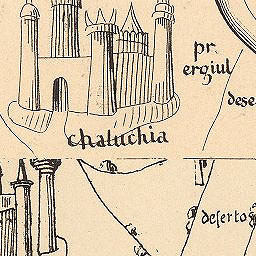 pr
ergiul
dese
chaluchia
deserto